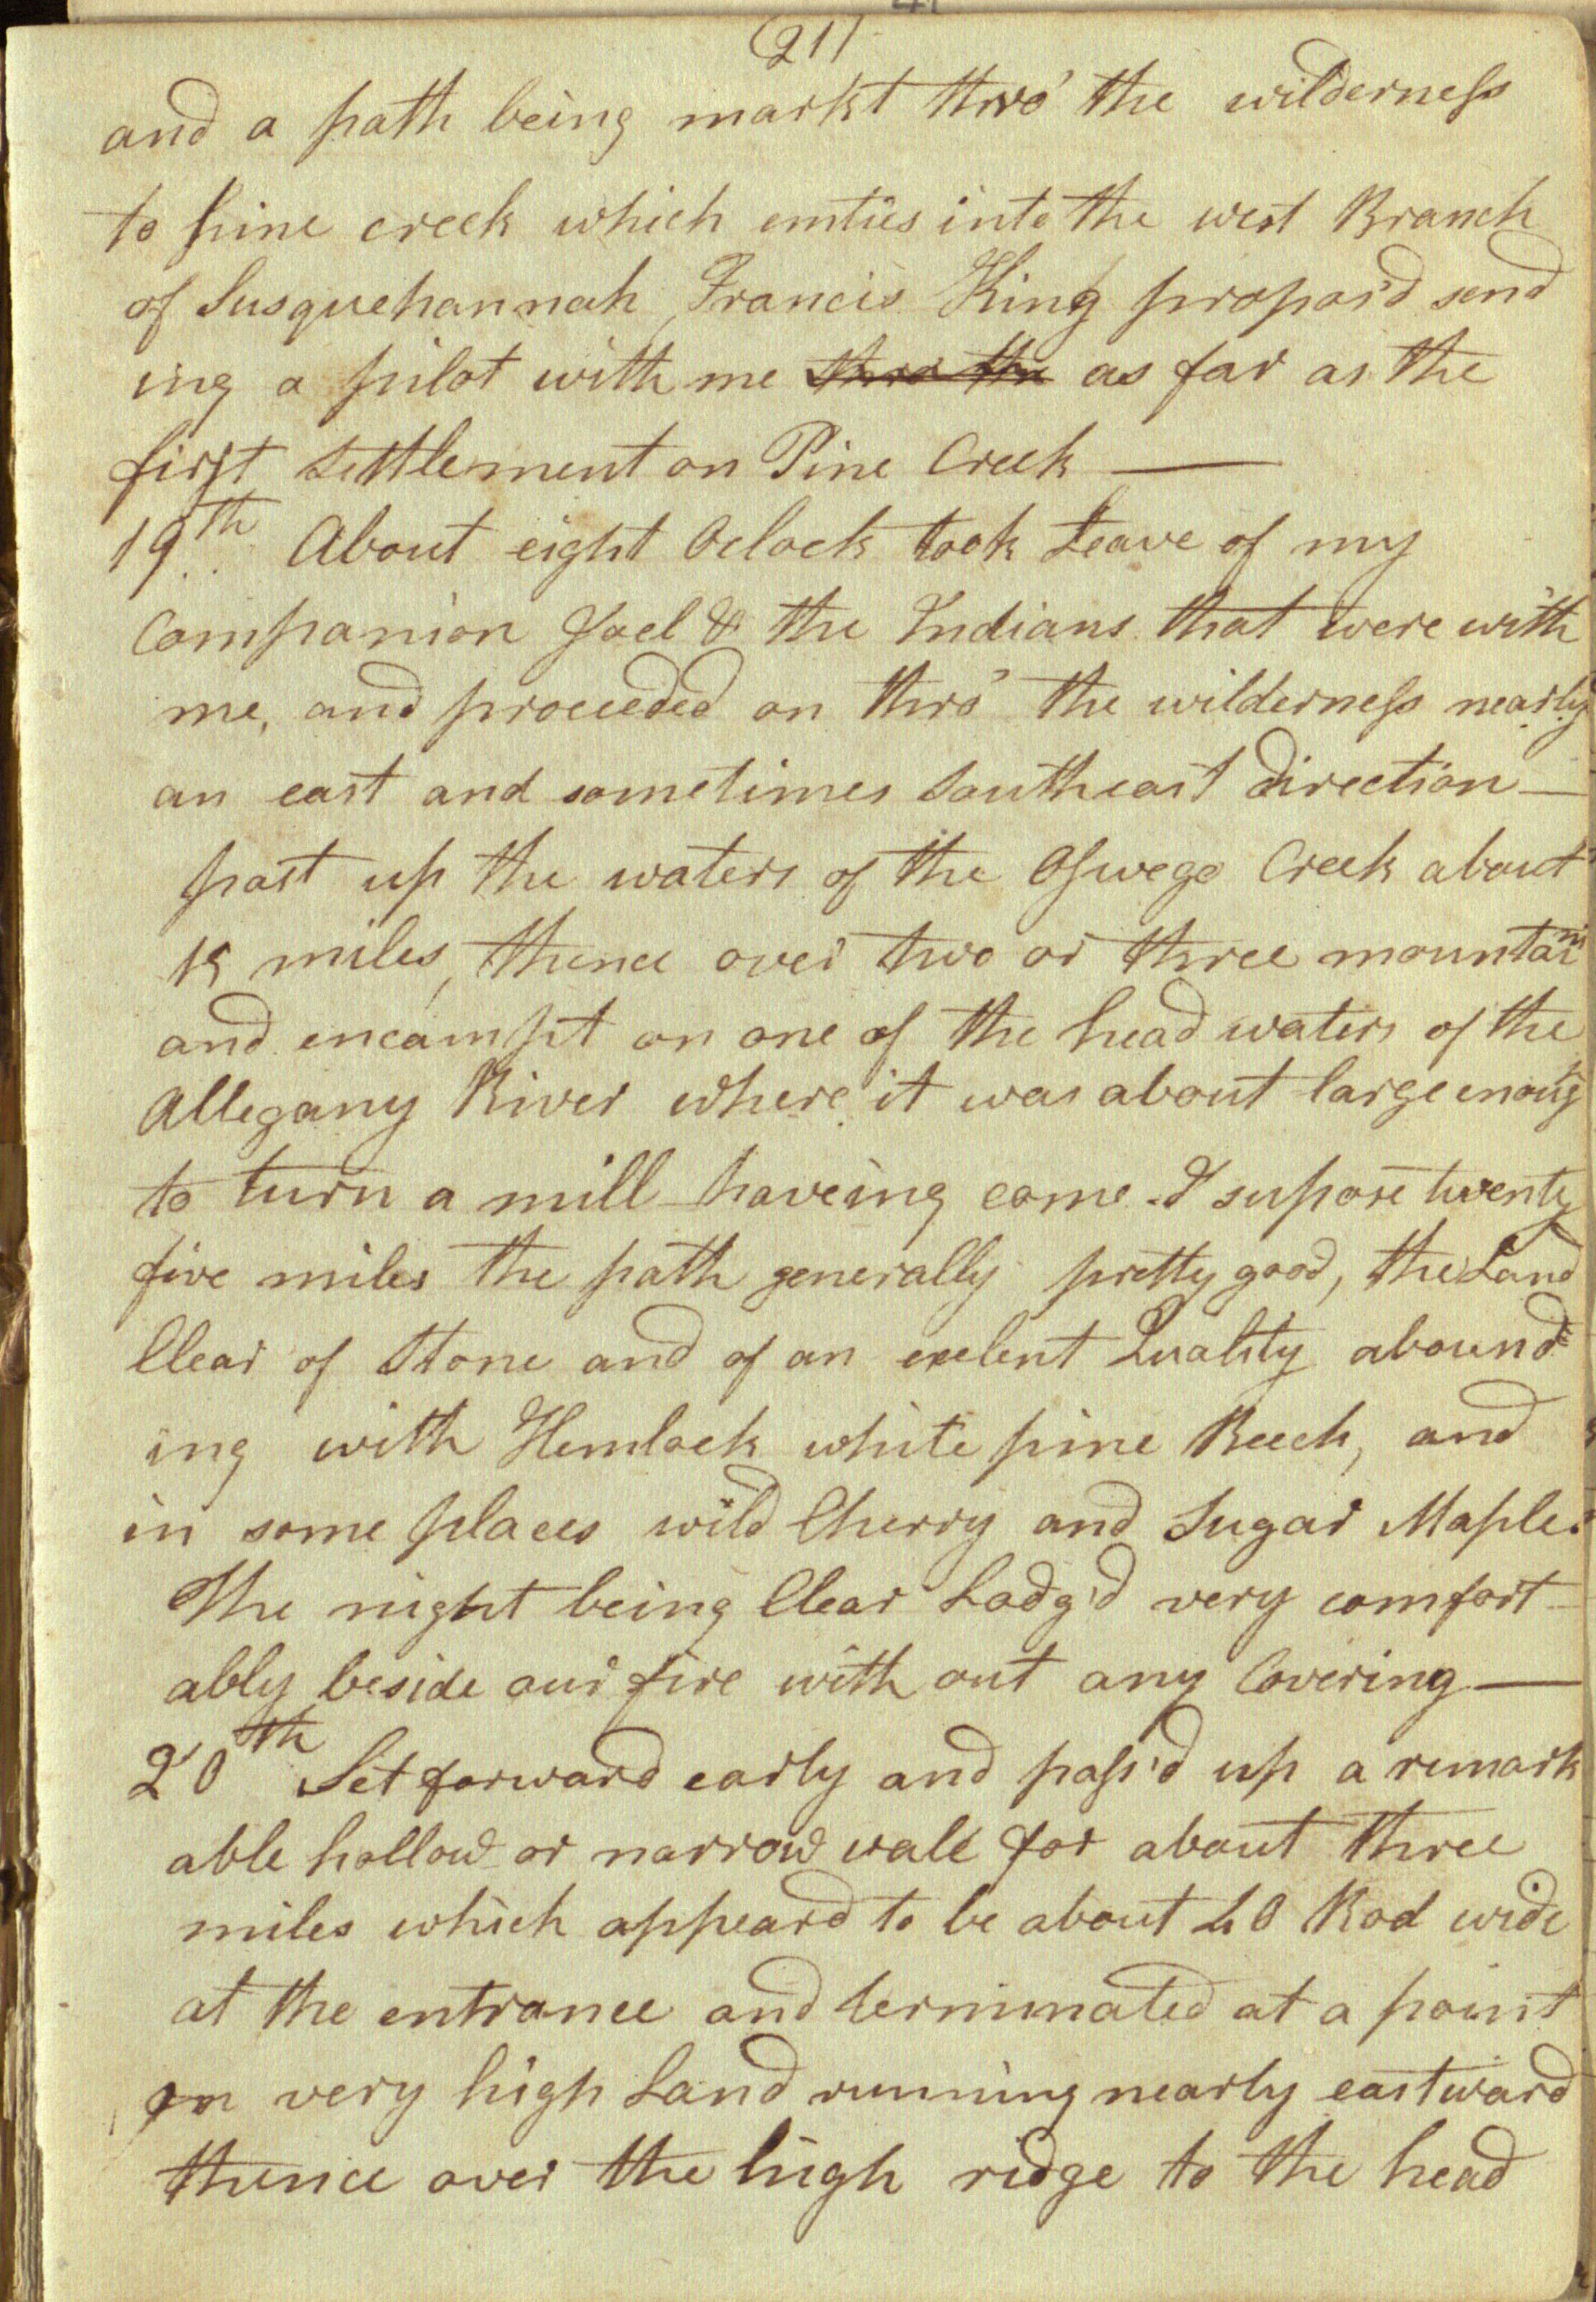 (21)
and a path being markt thro' the wilderness
to pine creek which emties into the west Branch
of Susquehannah, Francis King propos'd send
ing a pilot with me thro the as far as the
first settlement on Pine Creek —
19th.. About eight Oclock took Leave of my
Companion Joel & the Indians that were with
me, and proceeded on thro' the wilderness nearly
an east and sometimes Southeast direction —
past up the waters of the Oswego Creek about
15 miles, thence over two or three mountains
and encampt on one of the head waters of the
Allegany River where it was about large enoug
to turn a mill haveing come I supose twenty
five miles the path generally pretty good, the Land
Clear of Stone and of an exelent Quality abound=
ing with Hemlock white pine Beech, and
in some places wild Cherry and Sugar Maple.
The night being Clear Lodg'd very comfort-
ably beside our fire with out any Covering —
20th Set forward early and pass'd up a remark
able hollow or narrow vale for about three
miles which appeard to be about 40 Rod wide
at the entrance and terminated at a point
on very high Land running nearly eastward
thence over the high ridge to the head